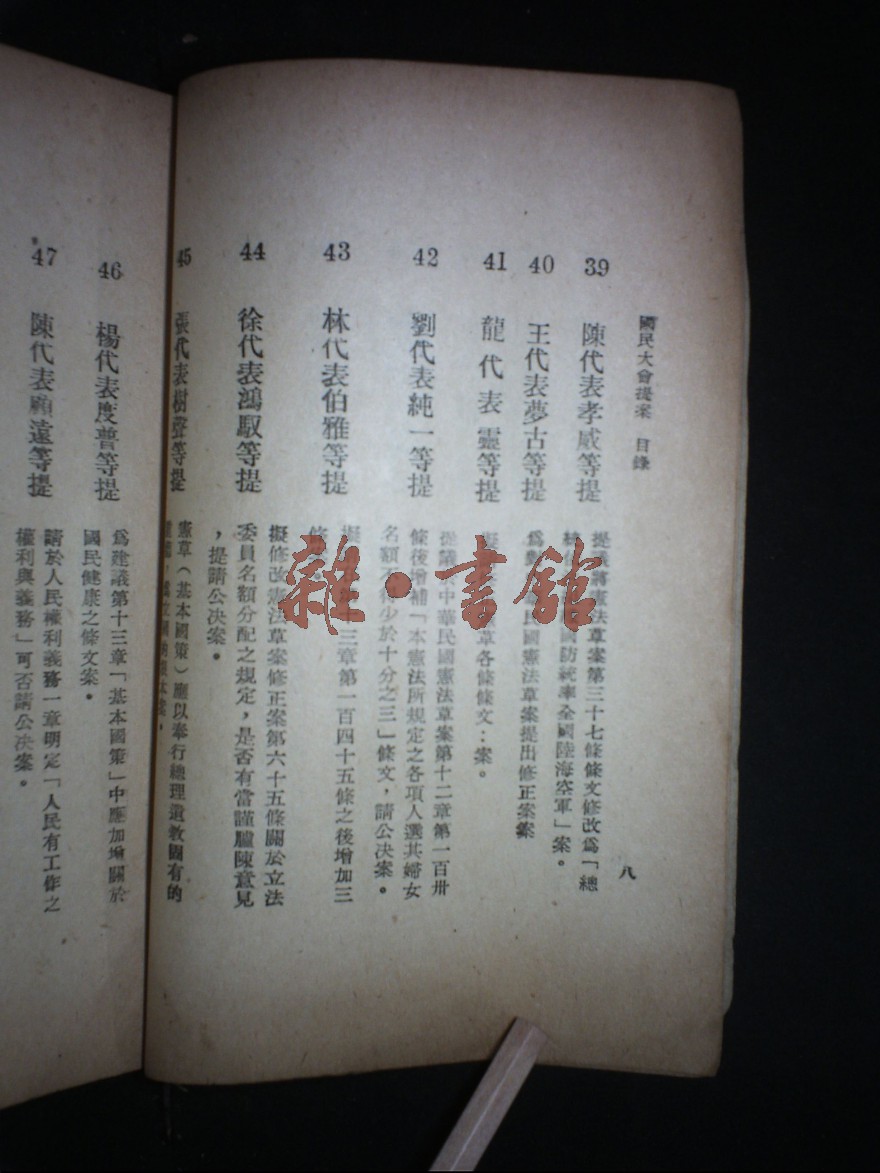 國民大會提案 目錄
八
39 陳代表孝威等提
提議將憲法草案第三十七條條文修改爲「總
國防統率全國陸海空軍」案。
40 王代表夢古等提
民國憲法草案提出修正案案
41 龍代表靈等提
草各條條文：案。
42 劉代表純一等提
提議中華民國憲法草案第十二章第一百卅
條後增補「本憲法所規定之各項人選其婦女
名額 少於十分之三」條文，請公決案。
43 林代表伯雅等提
擬 三章第一百四十五條之後增加三
條 。
44 徐代表鴻馭等提
擬修改憲法草案修正案第六十五條關於立法
委員名額分配之規定，是否有當謹臚陳意見
，提請公决案。
45 張代表樹聲等提
憲草（基本國策）應以奉行總理遺教固有的
案。
46 楊代表度普等提
爲建議第十三章「基本國策」中應加增關於
國民健康之條文案。
47 陳代表顧遠等提
請於人民權利義務一章明定「人民有工作之
權利與義務」可否請公決案。
雜·書館